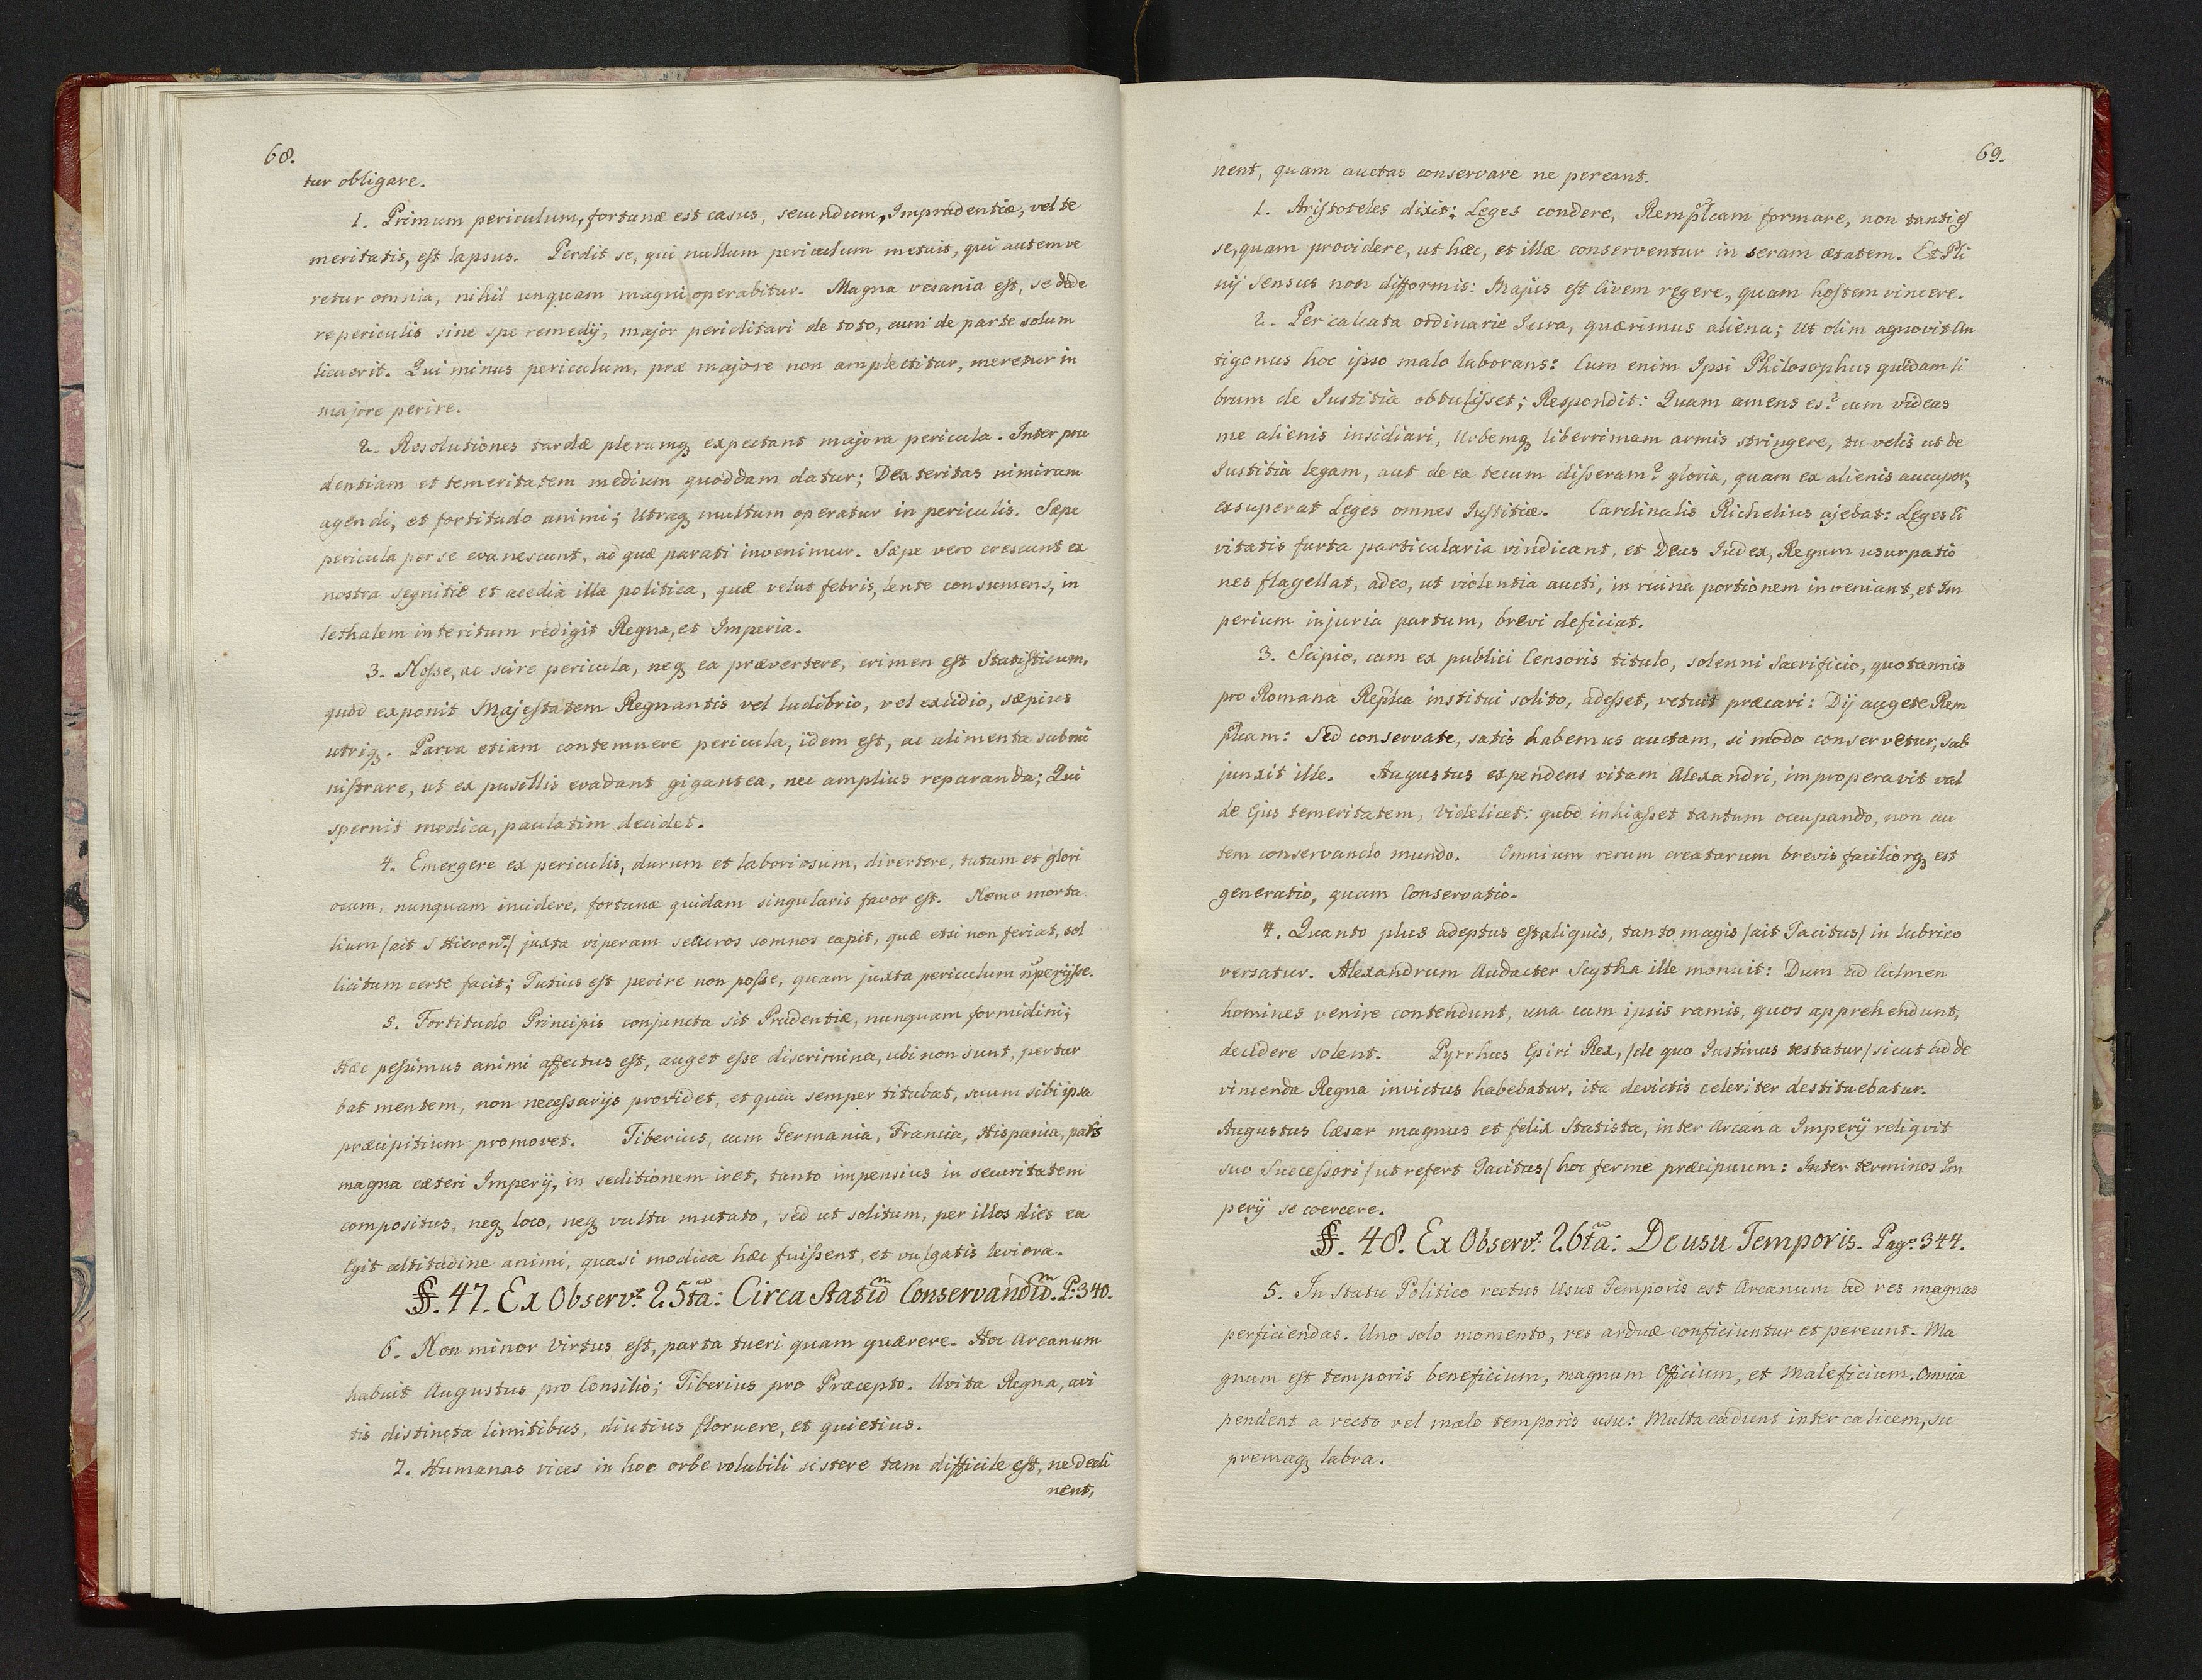 68.
tur obligare.
1. Primum periculum, fortunæ est casus, secundum, Imprudentiæ, vel te
meritatis, est lapsus. Perdit se, qui nullum periculum metuit, qui autem ve
retur omnia, nihil unquam magni operabitur. Magna vesania est, se dede
re periculis sine spe remedij, major periclitari de toto, cum de parte solum
licuerit. Qui minus periculum, præ majore non amplectitur, meretur in
majore perire.
2. Resolutiones tardæ plerumq; expectant majora pericula. Inter pru
dentiam et temeritatem medium quoddam datur; Dexteritas nimirum
agendi, et fortitudo animi; Utraq; multum operatur in periculis. Sæpe
pericula per se evanescunt, ad quæ parati invenimur. Sæpe vero crescunt ex
nostra segnitie et acedia illa politica, quæ velut febris, lente consumens, in
lethalem interitum redigit Regna, et Imperia.
3. Nosse, ac scire pericula, neq; ea prævertere, crimen est Statisticum,
quod exponit Majestatem Regnantis vel ludibrio, vel excidio, sæpius
utriq;. Parva etiam contemnere pericula, idem est, ac alimenta submi
nistrare, ut ex pusillis evadant gigantea, nec amplius reparanda; Qui
spernit modica, paulatim decidet.
4. Emergere ex periculis, durum et laboriosum, divertere, tutum et glori
osum, nunquam incidere, fortunæ quidam singularis favor est. Nemo morta
lium /ait S Hieron9:/ juxta viperam securos somnos capit, quæ etsi non feriat, sol
licitum certe facit; Tutius est perire non posse, quam juxta periculum ñ perijsse.
5. Fortitudo Principis conjuncta sit Prudentiæ, nunquam formidini;
Hæc pessimus animi affectus est, auget esse discrimina, ubi non sunt, pertur
bat mentem, non necessarijs providet, et quia semper titubat, suum sibi ipsa
præcipitium promovet. Tiberius, cum Germania, Francia, Hispania, pars
magna cæteri Imperij, in seditionem iret, tanto impensius in securitatem
compositus, neq; loco, neq; vultu mutato, sed ut solitum, per illos dies ea
Egit altitudine animi, quasi modica hæc fuissent, et vulgatis leviora.
§. 47. Ex Observ: 25ta: Circa Statũ Conservandũ. P: 340.
6. Non minor Virtus est, parta tueri quam quærere. Hoc Arcanum
habuit Augustus pro Consilio; Tiberius pro Præcepto. Avita Regna, avi
tis distincta limitibus, diutius floruere, et quietius.
7. Humanas vices in hoc orbe volubili sistere tam difficile est, ne decli
nent,
69.
nent, quam auctas conservare ne pereant.
1. Aristoteles dixit: Leges condere, Remplcam formare, non tanti es
se, quam providere, ut hæc, et illæ conserventur in seram ætatem. Et Pli
nij Sensus non difformis: Majus est Civem regere, quam hostem vincere.
2. Per calcata ordinarie Jura, quærimus aliena; Ut olim agnovit An
tigonus hoc ipso malo laborans: Cum enim Ipsi Philosophus quidam li
brum de Justitia obtulisset; Respondit: Quam amens es? cum videas
me alienis insidiari, Urbemq; liberrimam armis stringere, tu velis ut de
Justitia legam, aut de ea tecum disseram? gloria, quam ex alienis aucupor,
exsuperat Leges omnes Justitiæ. Cardinalis Richelius ajebat: Leges Ci
vitatis furta particularia vindicant, et Deus Judex, Regum usurpatio
nes flagellat, adeo, ut violentia aucti, in ruina portionem inveniant, et Im
perium injuria partum, brevi deficiat.
3. Scipio, cum ex publici Censoris titulo, solenni Sacrificio, quotannis
pro Romana Replca institui solito, adesset, vetuit præcari: Dij augete Rem
plcam: Sed conservate, satis habemus auctam, si modo conservetur, sub
junxit ille. Augustus expendens vitam Alexandri, improperavit val
de Ejus temeritatem, Videlicet: quod inhiasset tantum occupando, non au
tem conservando mundo. Omnium rerum creatarum brevis faciliorq; est
generatio, quam Conservatio.
4. Quanto plus adeptus est aliquis, tanto magis /ait Tacitus/ in lubrico
versatur. Alexandrum Audacter Scytha ille monuit: Dum ad Culmen
homines venire contendunt, una cum ipsis ramis, quos apprehendunt,
decidere solent. Pyrrhus Epiri Rex, /de quo Justinus testatur/ sicut ad de
vincenda Regna invictus habebatur, ita devictis celeriter destituebatur.
Augustus Cæsar magnus et felix Statista, inter Arcana Imperij reliqvit
suo Successori /ut refert Tacitus/ hoc ferme præcipuum: Inter terminos Im
perij se coercere.
§. 48. Ex Observ: 26ta: De usu Temporis. Pag: 344.
5. In Statu Politico rectus Usus Temporis est Arcanum ad res magnas
perficiendas. Uno solo momento, res arduæ conficiuntur et pereunt. Ma
gnum est temporis beneficium, magnum Officium, et Maleficium. Omnia
pendent a recto vel malo temporis usu: Multa cadunt inter calicem, su
premaq; labra.